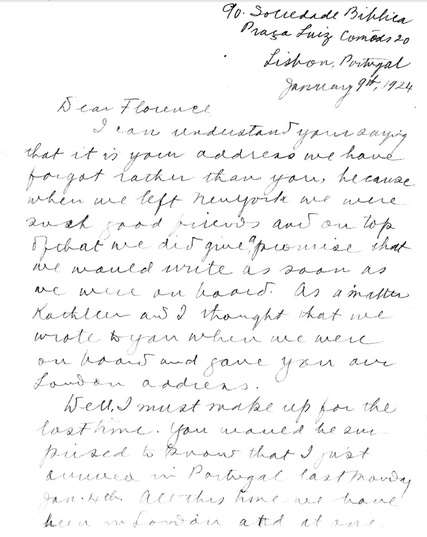 90. Sociedade Biblica
Praça Luiz Comões 20
Lisbon, Portugal
January 9th, 1924
Dear Florence
I can understand your saying
that it is your address we have
forgot rather than you, because
when we left New York we were
such good friends and on top
of that we did give a promise that
we would write as soon as
we were on board. As a matter
and I thought that we
wrote to you when we were
on board and gave you our
London address.
Well, I must make up for the
lost time. You would be sur-
prised to know that I just
arrived in Portugal last Monday
Jan. 4th. All this time we have
been in London and at one